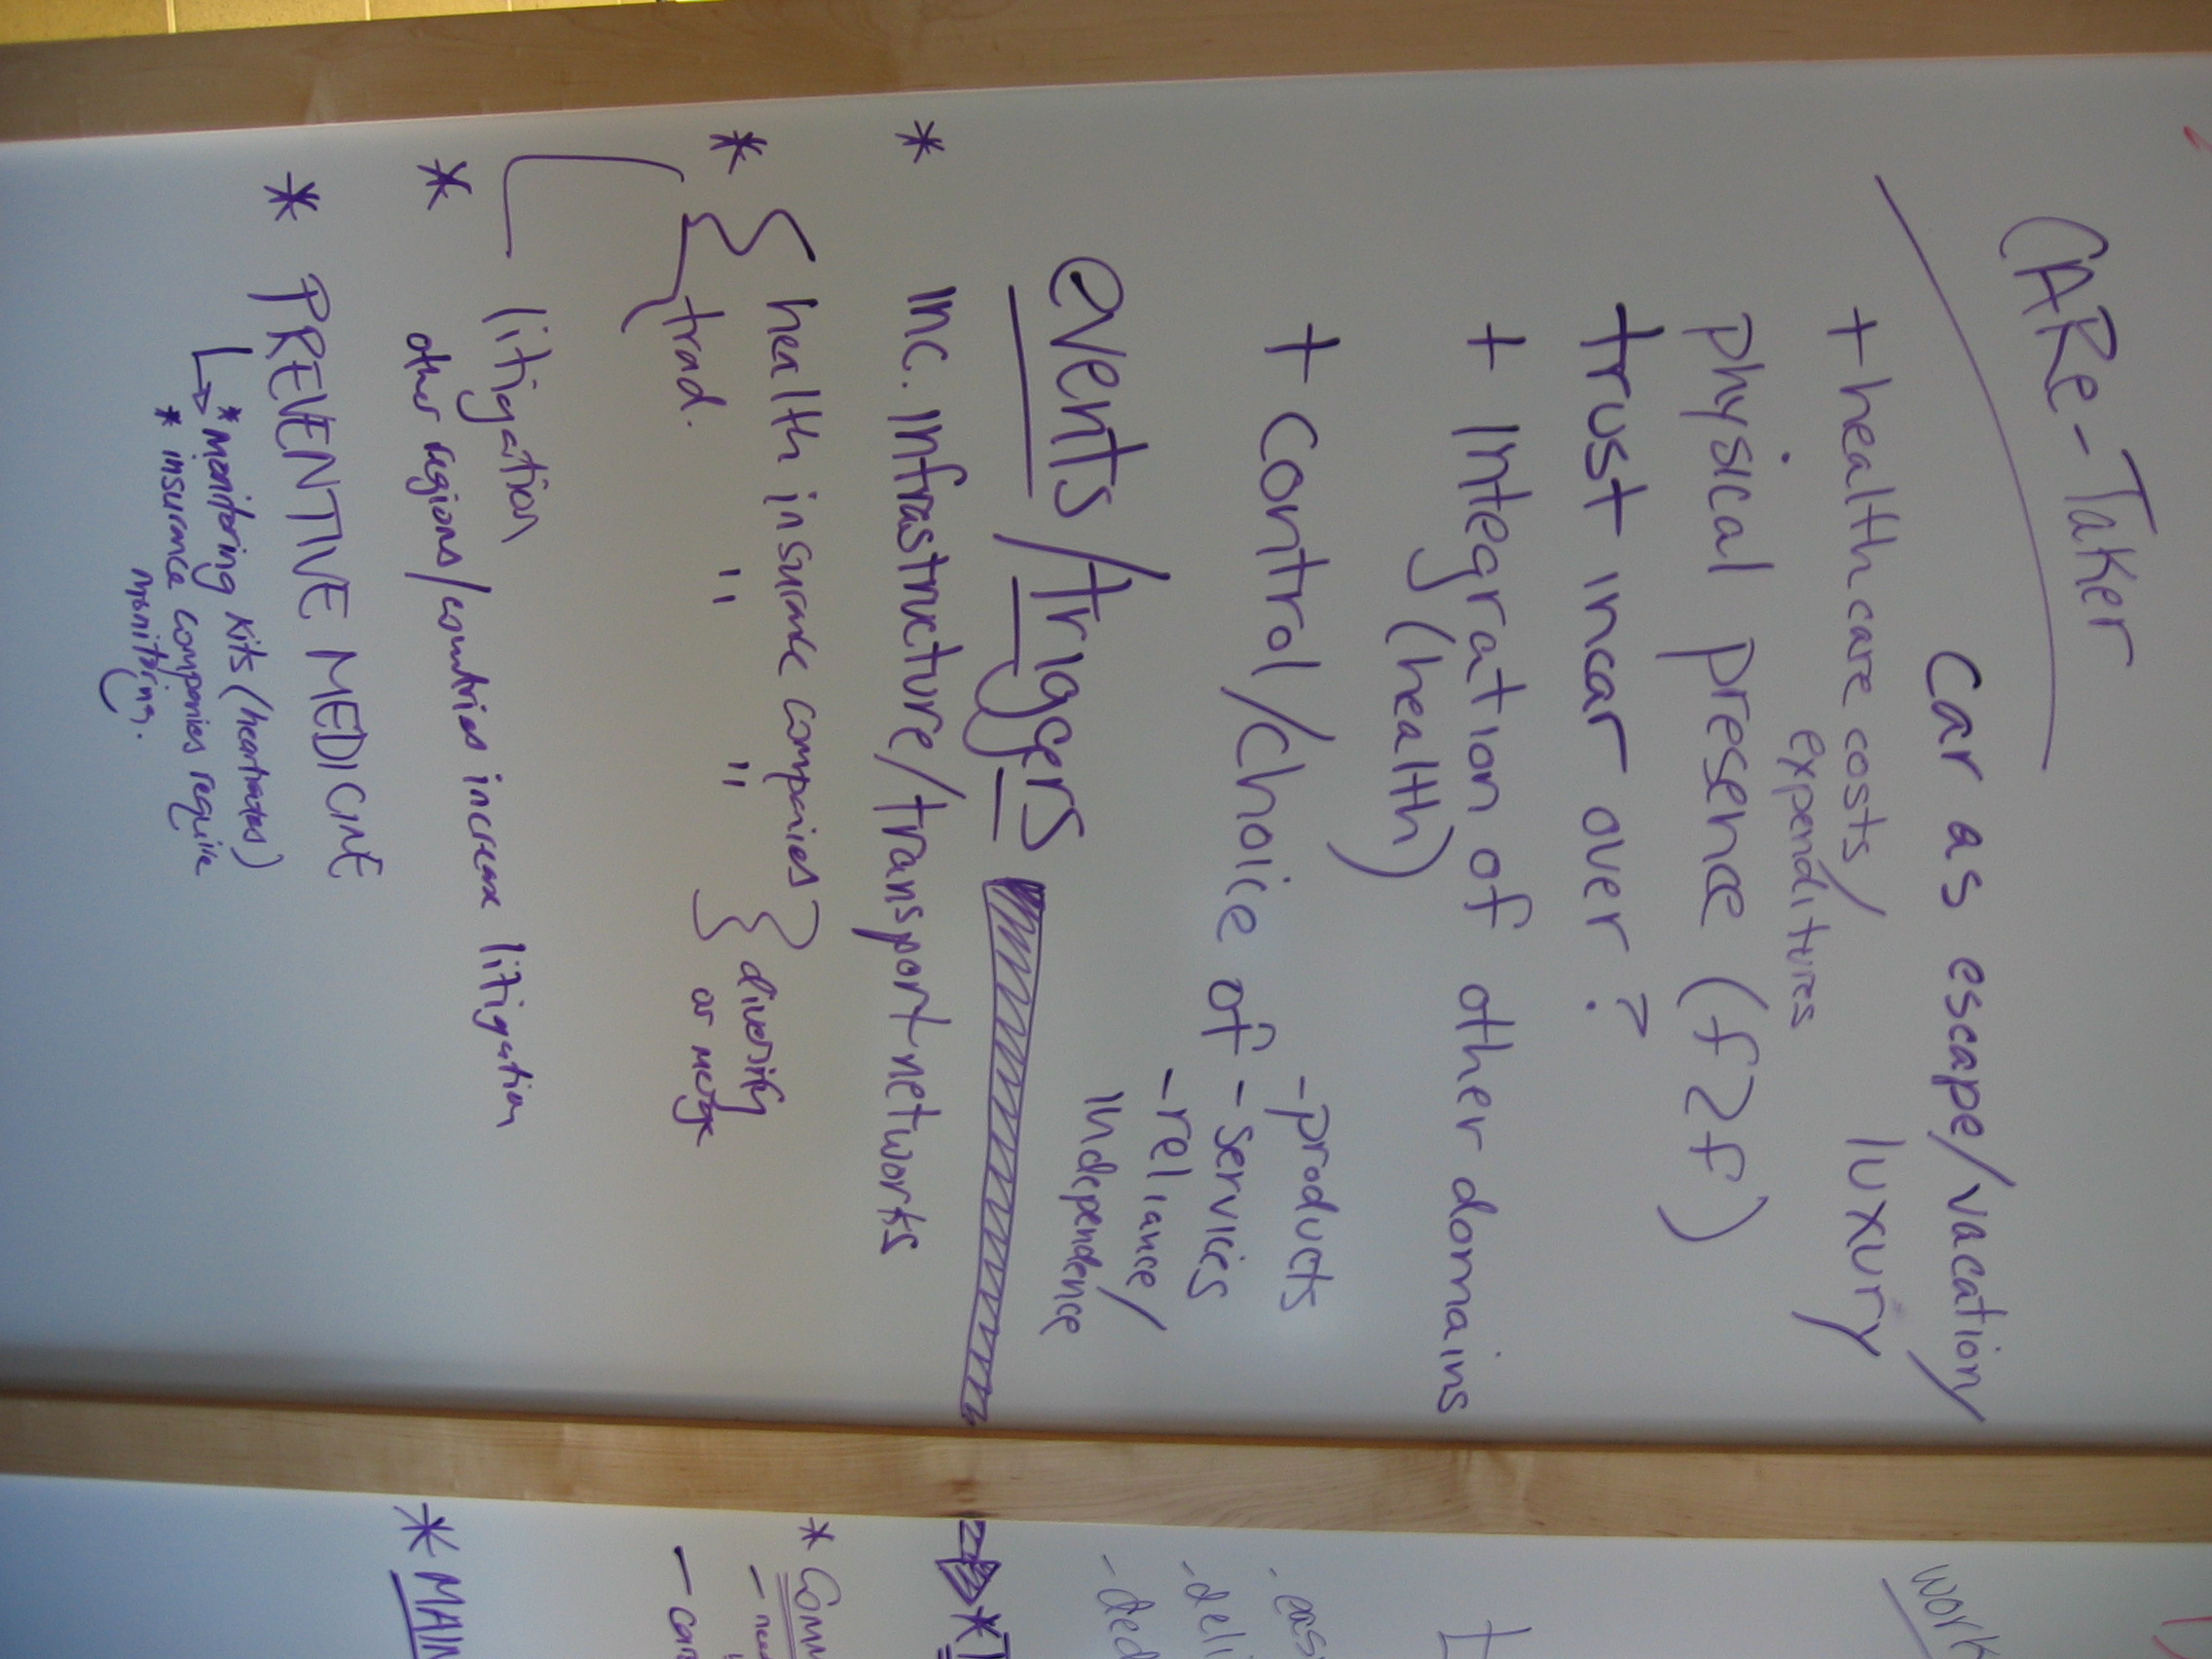 CARe-Taker
Car as escape/vacation/
luxury
+ healthcare costs/
expenditures
physical presence (f2f)
trust in car over ?
+ Integration of other domains
(health)
+ control/choice of - services
- products
- reliance/
independence
events/triggers
* inc. infrastructure/transport networks
* { health insurance companies } diversify
{ trad. " " } or merge
litigation
* other regions/countries increase litigation
* PREVENTIVE MEDICINE
* monitoring kits (heartrates)
* insurance companies require
monitoring.
work
- eas
- deli
- ded
* Comm
- need
- car
* MAIN